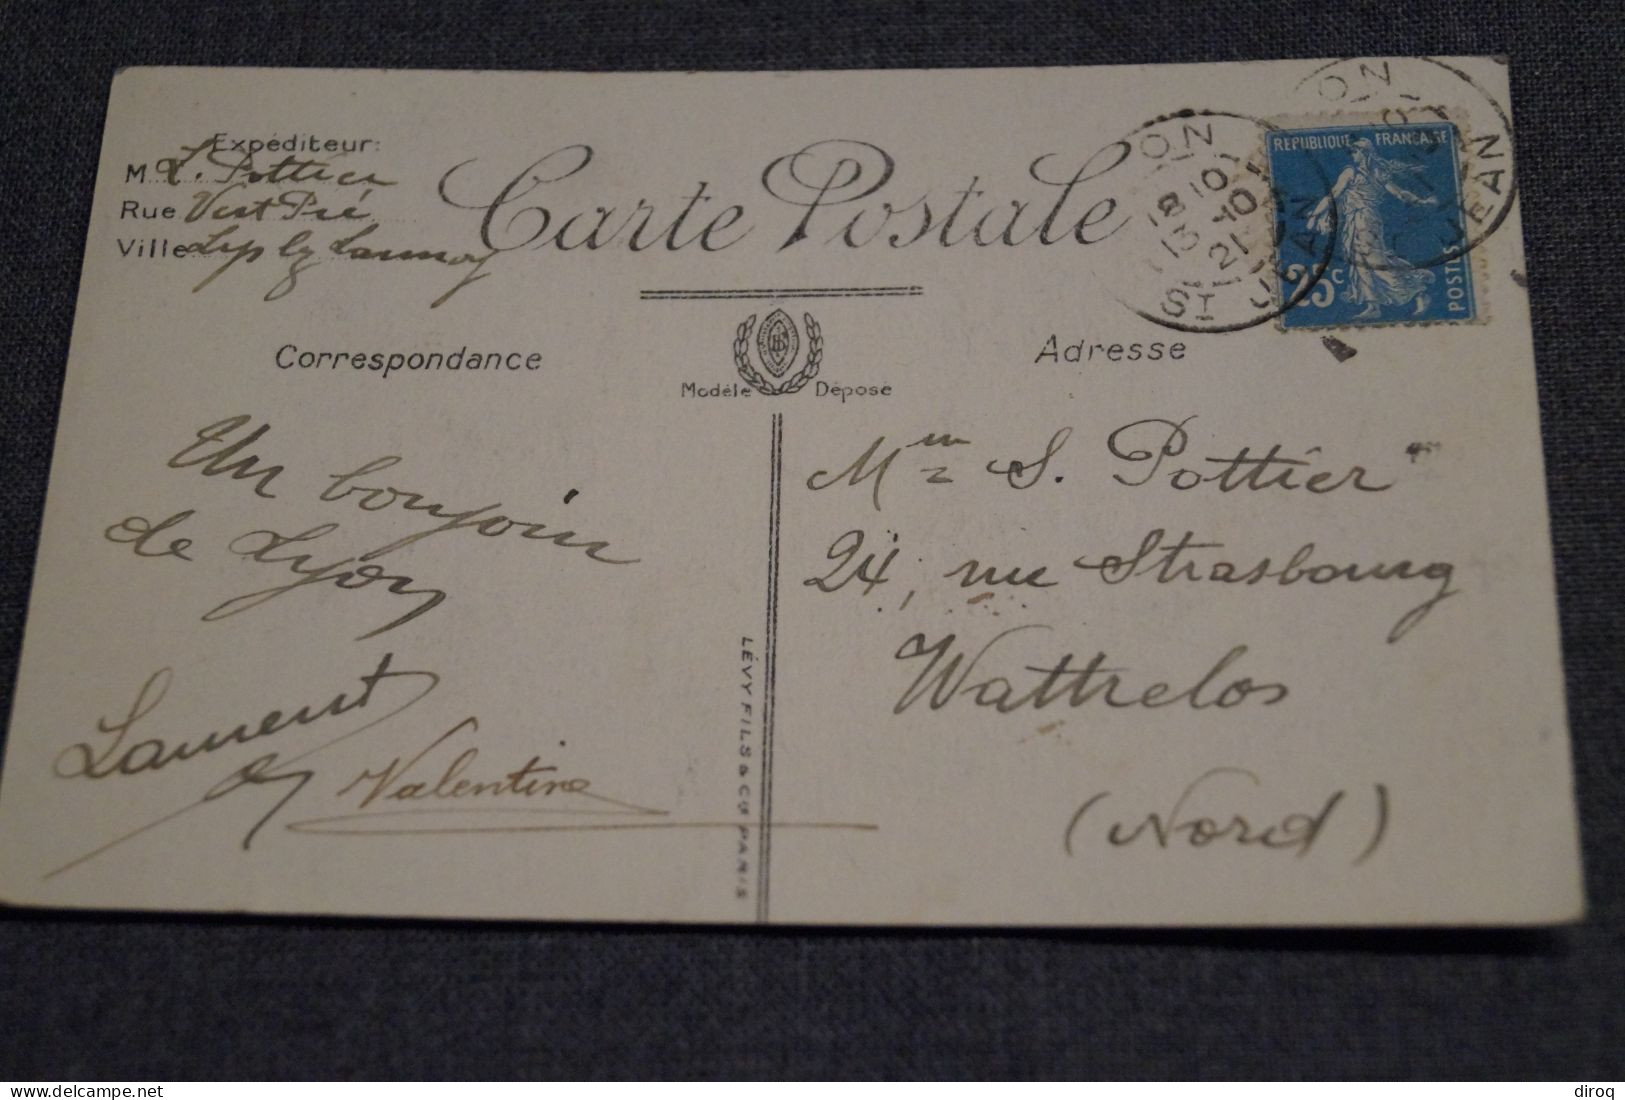 Expéditeur:
M. L. Pottier
Rue Vert Pré
Ville Lys lez Lannoy
Carte Postale
Correspondance
Modèle Déposé
Adresse
RÉPUBLIQUE FRANÇAISE
25c
POSTES
ON
18 10
15 -10
21
ST JEAN
ON
JEAN
Un bonjour
de Lyon
Laurent
Valentine
LÉVY FILS & Co PARIS
Mme S. Pottier
24, rue Strasbourg
Wattrelos
(Nord)
diroq